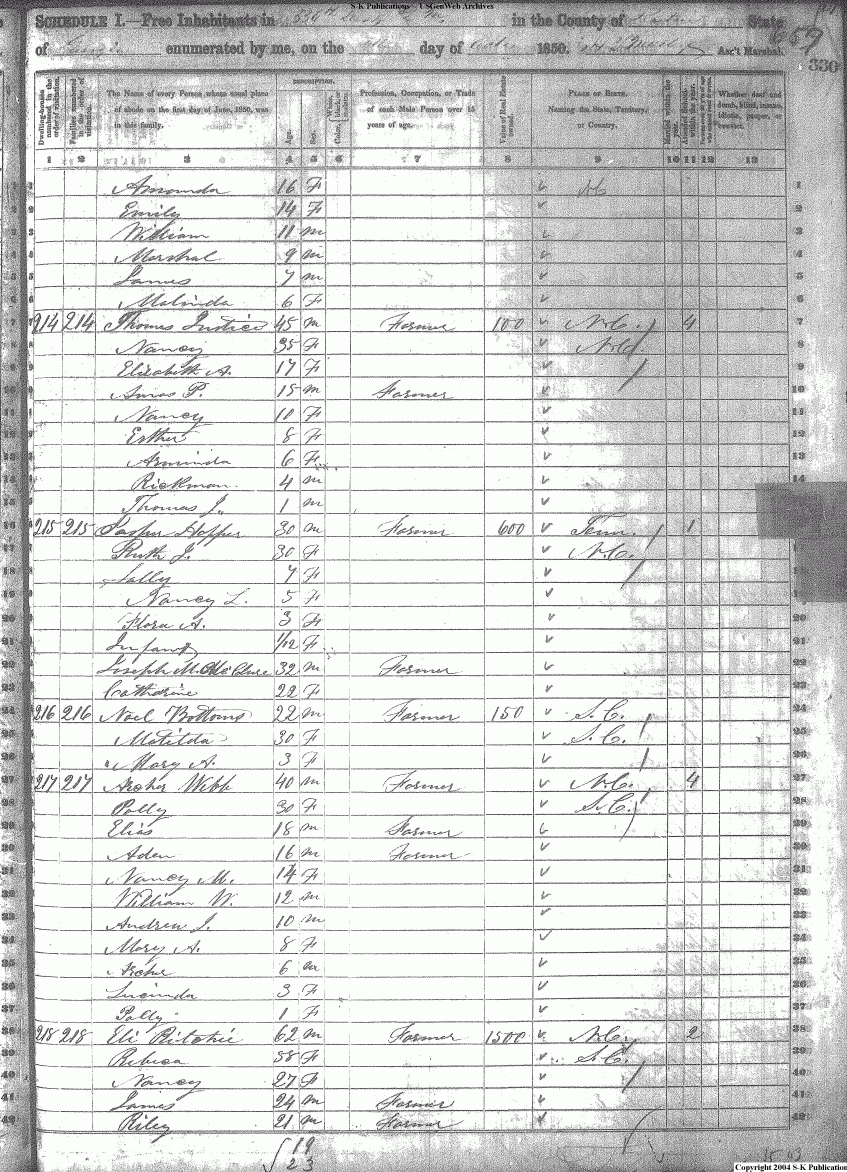 S-K Publications - USGenWeb Archives
SCHEDULE I.—Free Inhabitants in in the County of State
of enumerated by me, on the day of 1850. Ass't Marshal.
659
330
Dwelling-houses numbered in the order of visitation.
Families numbered in the order of visitation.
The Name of every Person whose usual place of abode on the first day of June, 1850, was in this family.
DESCRIPTION.
Age.
Sex.
Color, White, black, or mulatto.
Profession, Occupation, or Trade of each Male Person over 15 years of age.
Value of Real Estate owned.
PLACE OF BIRTH. Naming the State, Territory, or Country.
Married within the year.
Whether deaf and dumb, blind, insane, idiotic, pauper, or convict.
1 2 3 4 5 6 7 8 9 10 11 12 13
1 Amanda 16 F 1
2 Emily 14 F 2
3 William 11 m 3
4 Marshal 9 m 4
5 James 7 m 5
6 Malinda 6 F 6
7 214 214 Thomas Justice 45 m Farmer 100 N.C. 4 7
8 Nancy 35 F N.C. 8
9 Elizabeth A. 17 F 9
10 Amos P. 15 m Farmer 10
11 Nancy 10 F 11
12 Esther 8 F 12
13 Arminda 6 F 13
14 Rickman 4 m 14
15 Thomas J. 1 m 15
16 215 215 Jasper Hopper 30 m Farmer 600 Tenn. 1
17 Ruth J. 30 F N.C.
18 Sally 7 F
19 Nancy L. 5 F
20 Flora A. 3 F 20
21 Infant 1/12 F 21
22 Joseph M. McClure 32 m Farmer 22
23 Catharine 22 F 23
24 216 216 Noel Bottoms 22 m Farmer 150 S.C. 24
25 Matilda 30 F S.C. 25
26 Mary A. 3 F 26
27 217 217 Archer Webb 40 m Farmer N.C. 4 27
28 Polly 30 F S.C. 28
29 Elias 18 m Farmer 29
30 Aden 16 m Farmer 30
31 Nancy M. 14 F 31
32 William W. 12 m 32
33 Andrew J. 10 m 33
34 Mary A. 8 F 34
35 Archer 6 m 35
36 Lucinda 3 F 36
37 Polly 1 F 37
38 218 218 Eli Ritchie 62 m Farmer 1500 N.C. 2 38
39 Rebeca 58 F S.C. 39
40 Nancy 27 F 40
41 James 24 m Farmer 41
42 Riley 21 m Farmer 42
19
23
Copyright 2004 S-K Publication